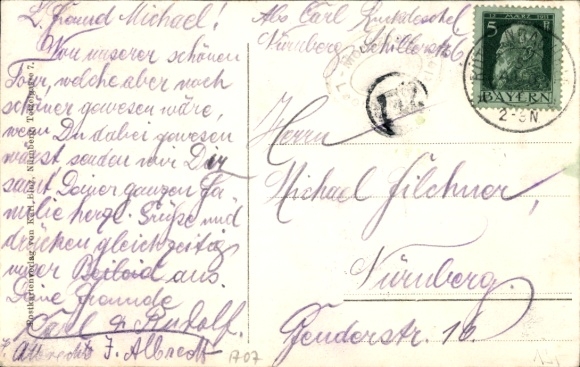 L. Freund Michael!
Von unserer schönen
Tour, welche aber noch
schöner gewesen wäre,
wenn Du dabei gewesen
wärst senden wir Dir
samt Deiner ganzen Fa
milie herzl. Grüße und
drücken gleichzeitig
unser Beileid aus.
Deine Freunde
Carl & Rudolf.
Albrecht J. Albrecht
1707
Postkartenverlag von Nürnberg 7.
Abs. Carl
Nürnberg Schillerstr.
12. MÄRZ 1911
5
BAYERN
2-3N
Herrn
Michael Filchner,
Nürnberg.
16.